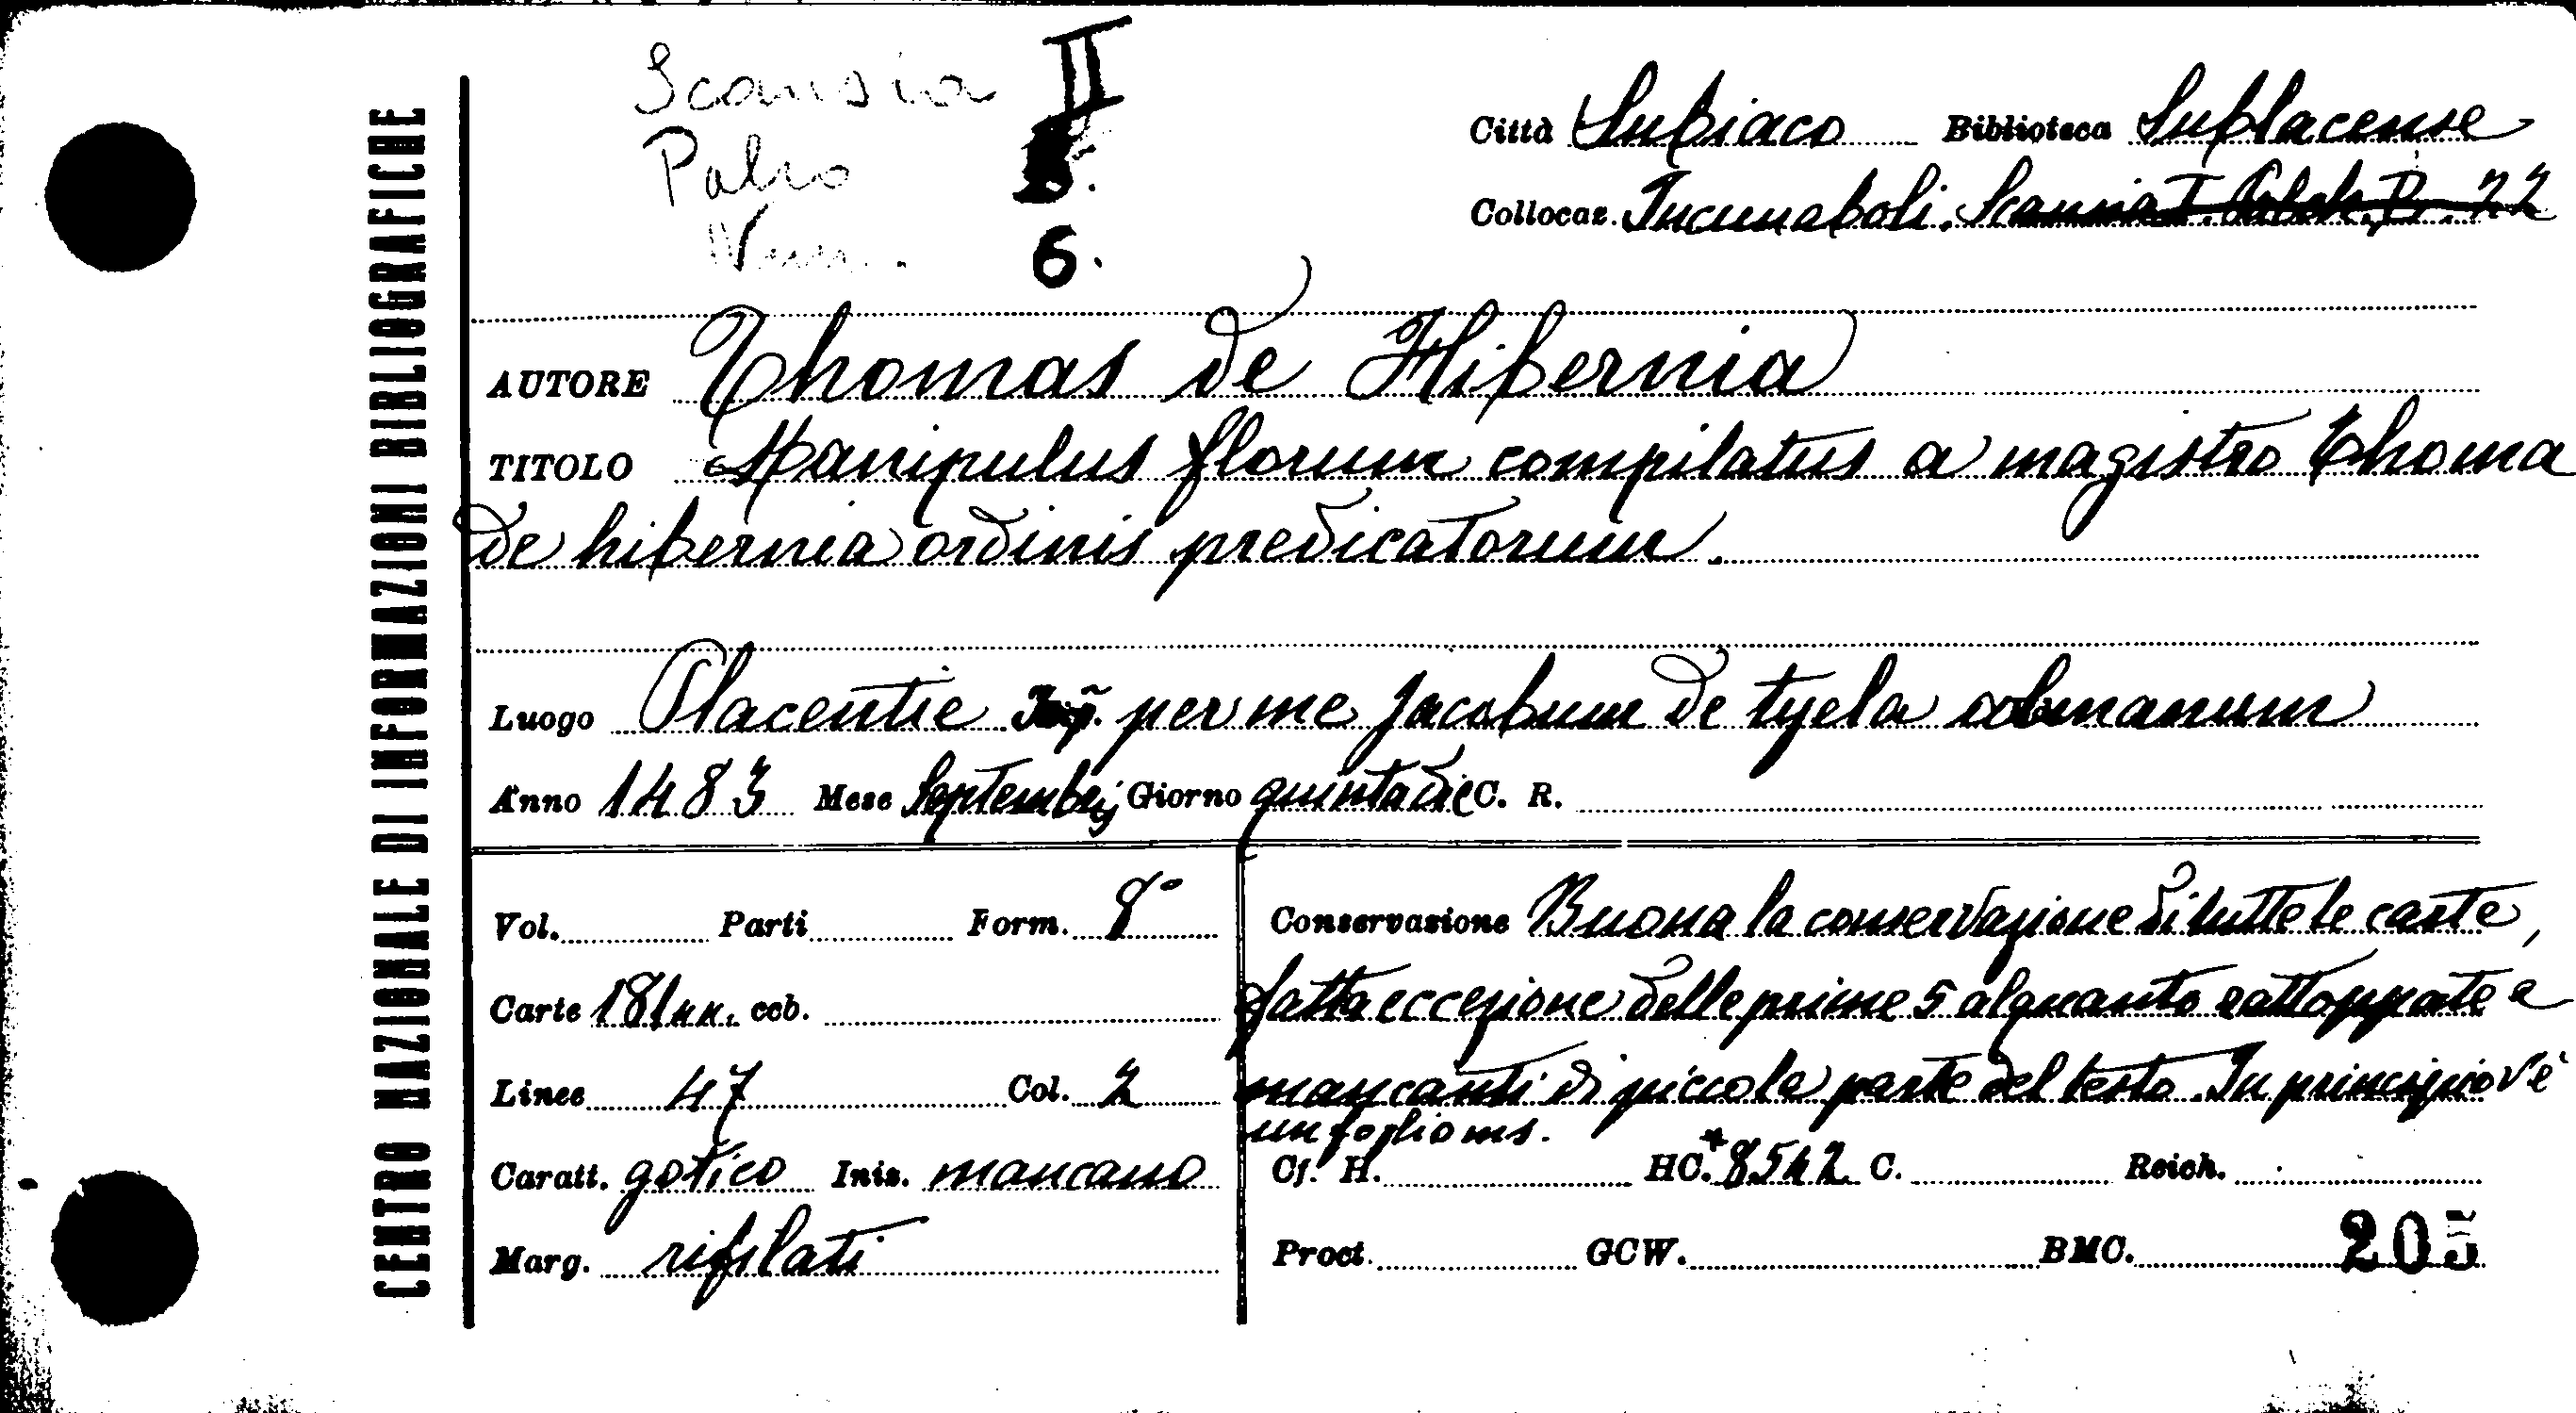 CENTRO NAZIONALE DI INFORMAZIONI BIBLIOGRAFICHE
Scansia II
Palco
Num. 6.
Città Subiaco Biblioteca Sublacense
Collocaz. Incunaboli. Scansia I. 22
AUTORE Thomas de Hibernia
TITOLO Manipulus florum compilatus a magistro Thoma
de hibernia ordinis predicatorum.
Luogo Placentie per me Jacobum de tyela
Anno 1483 Mese Septembrij Giorno quinta die C. R.
Vol. Parti Form. 8°
Carte 181 nn. ecb.
Linee 47 Col. 2
Caratt. gotico Iniz. mancano
Marg. rifilati
Conservazione Buona la conservazione di tutte le carte,
fatta eccezione delle prime 5 alquanto rattoppate e
mancanti di piccola parte del testo. In principio v'è
un foglio ms.
Cf. H. HC.*8542 C. Reich.
Proct. GCW. BMC. 205